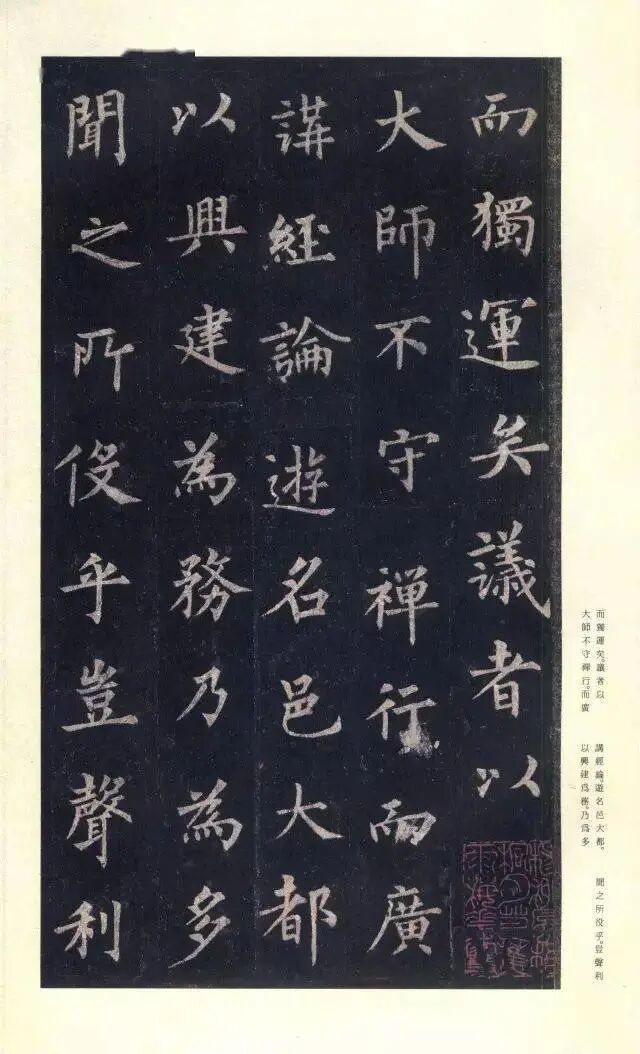 而獨運矣議者以
大師不守禪行而廣
講經論遊名邑大都
以興建為務乃為多
聞之所役乎豈聲利
而獨運矣。議者以
大師不守禪行。而廣
講經論。遊名邑大都。
以興建爲務。乃爲多
聞之所没乎。豈聲利